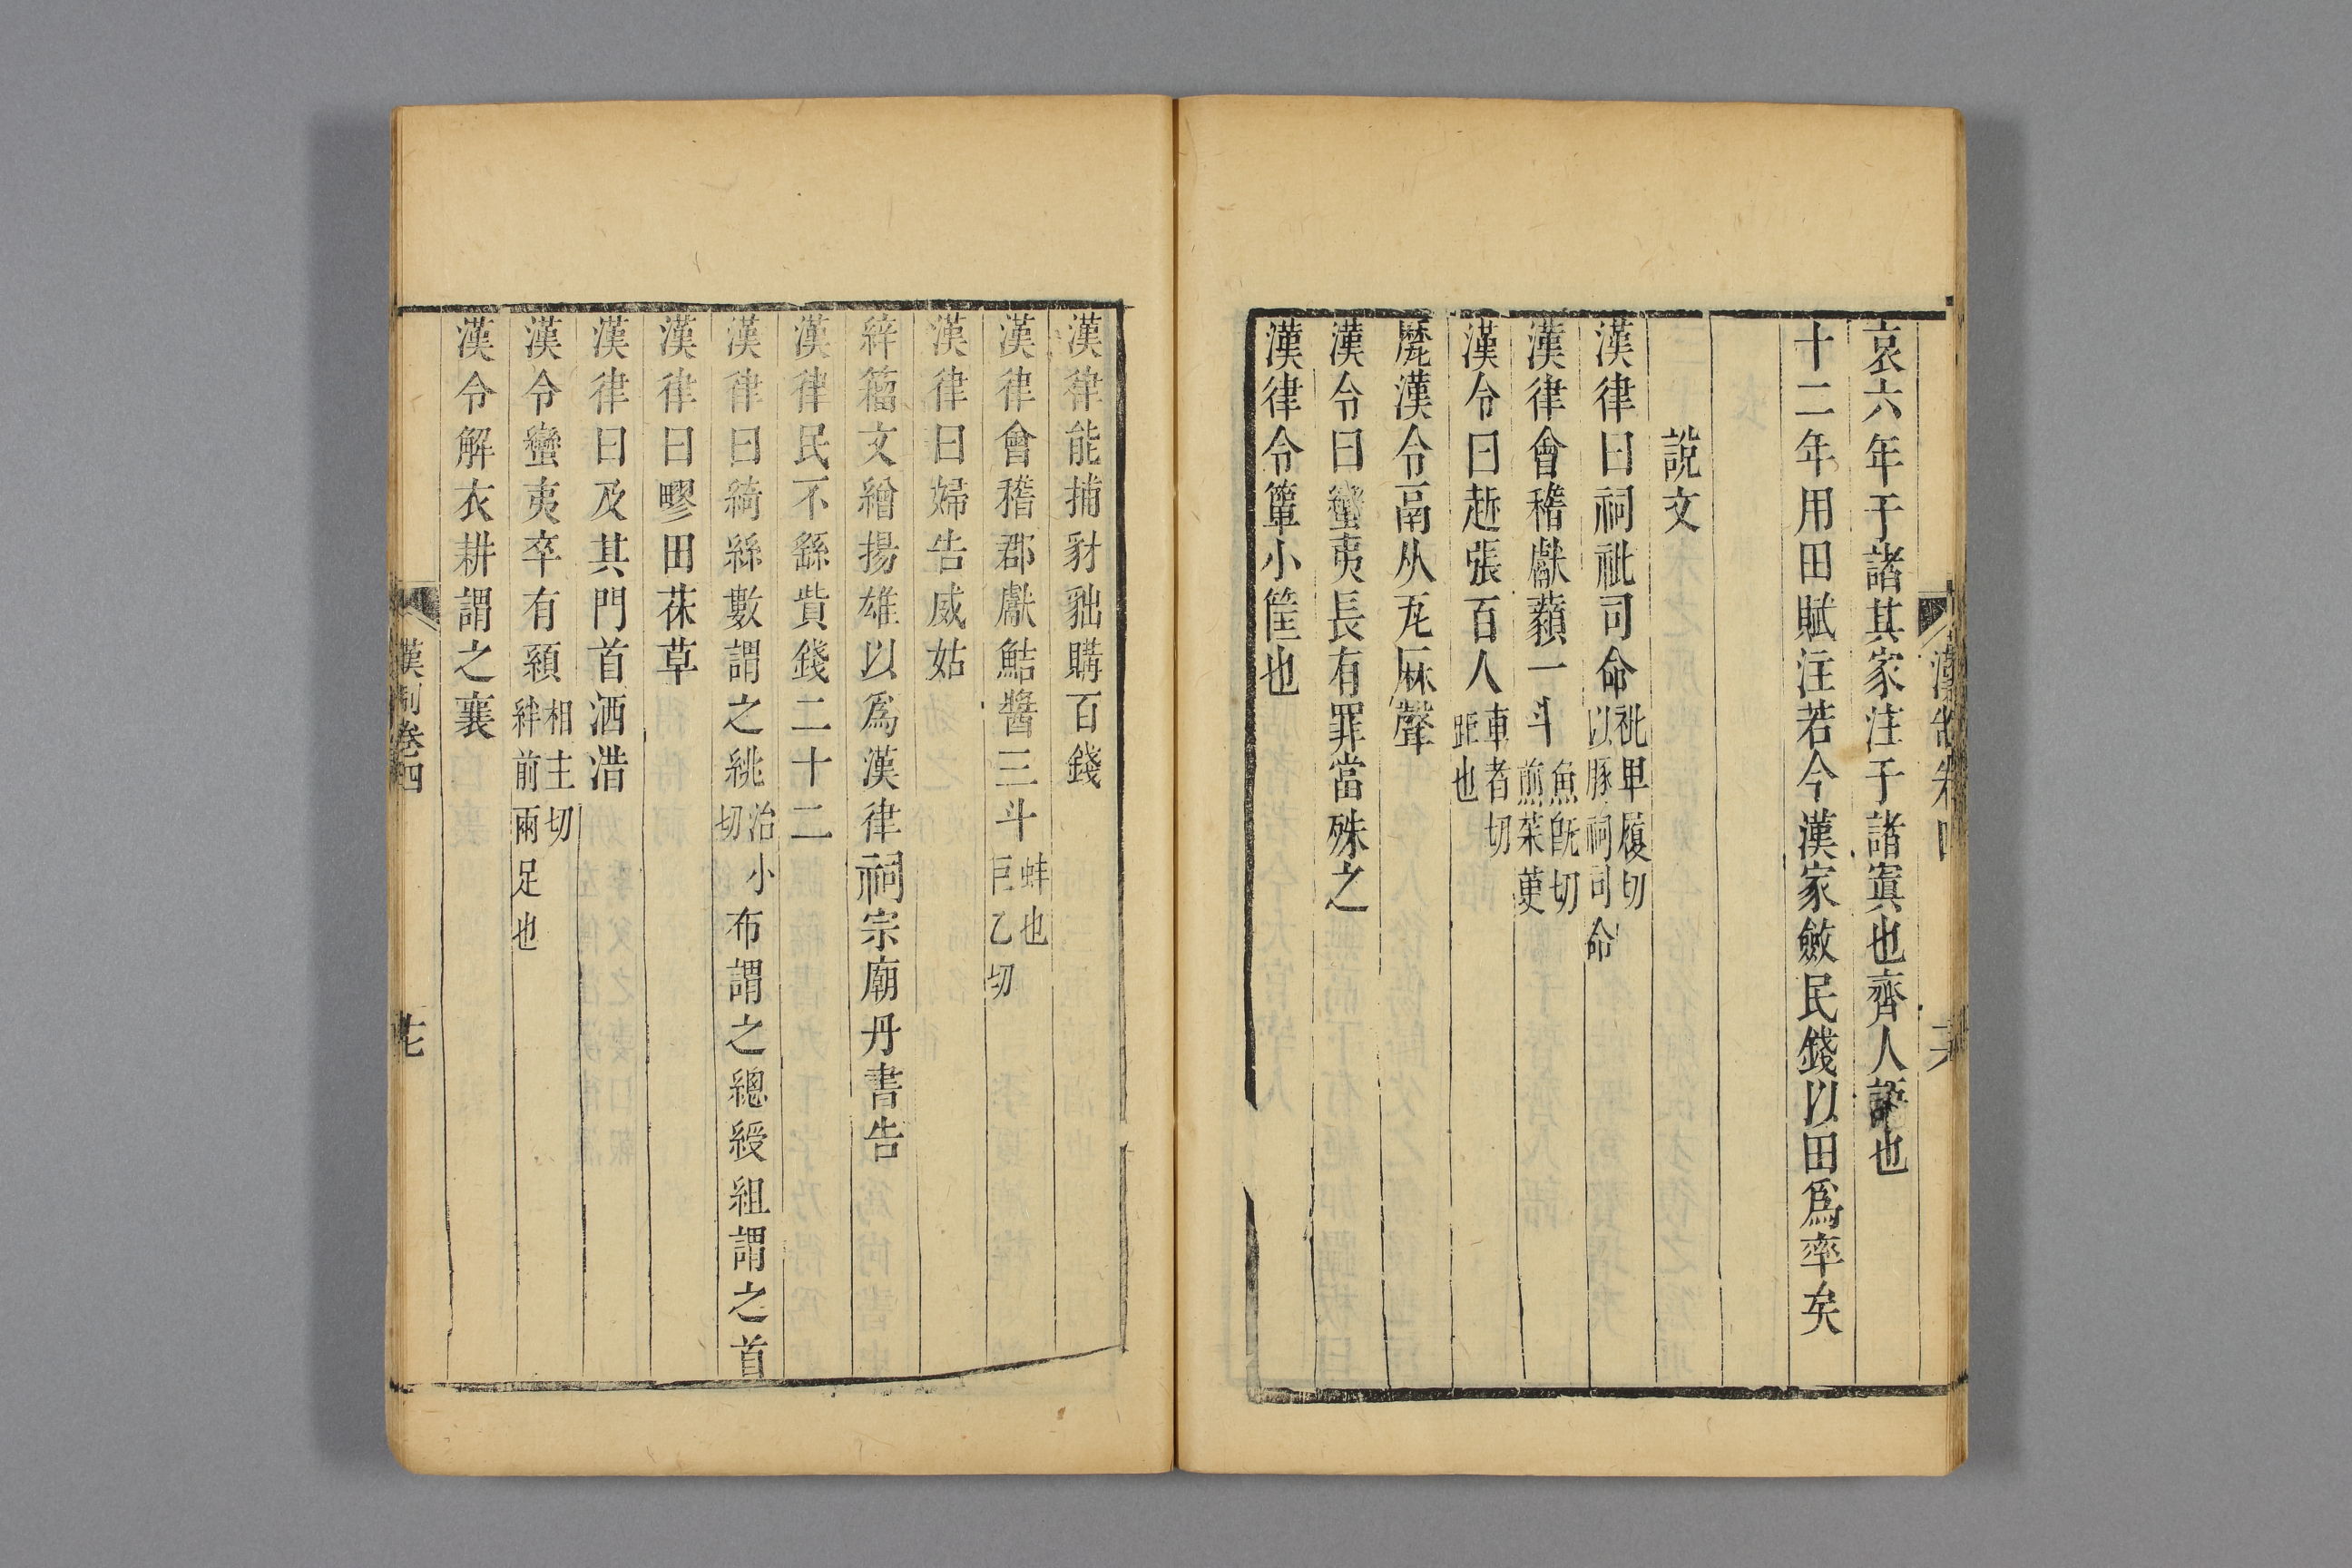 哀六年于諸其家注于諸寘也齊人語也
十二年用田賦注若今漢家斂民錢以田爲率矣
說文
漢律曰祠祉司命祉卑履切以豚祠司命
漢律會稽獻藙一斗魚旣切煎茱萸
漢令曰趀張百人車者切距也
㽁漢令鬲从瓦厤聲
漢令曰蠻夷長有罪當殊之
漢律令簞小筐也
漢制卷四
漢律能捕豺貀購百錢
漢律會稽郡獻鮚醬三斗蚌也巨乙切
漢律曰婦告威姑
縡籀文繒揚雄以爲漢律祠宗廟丹書告
漢律民不繇貲錢二十二
漢律曰綺絲數謂之絩治小切布謂之總綬組謂之首
漢律曰疁田茠草
漢律曰及其門首洒浩
漢令蠻夷卒有䫂相主切絆前兩足也
漢令解衣耕謂之襄
漢制卷四